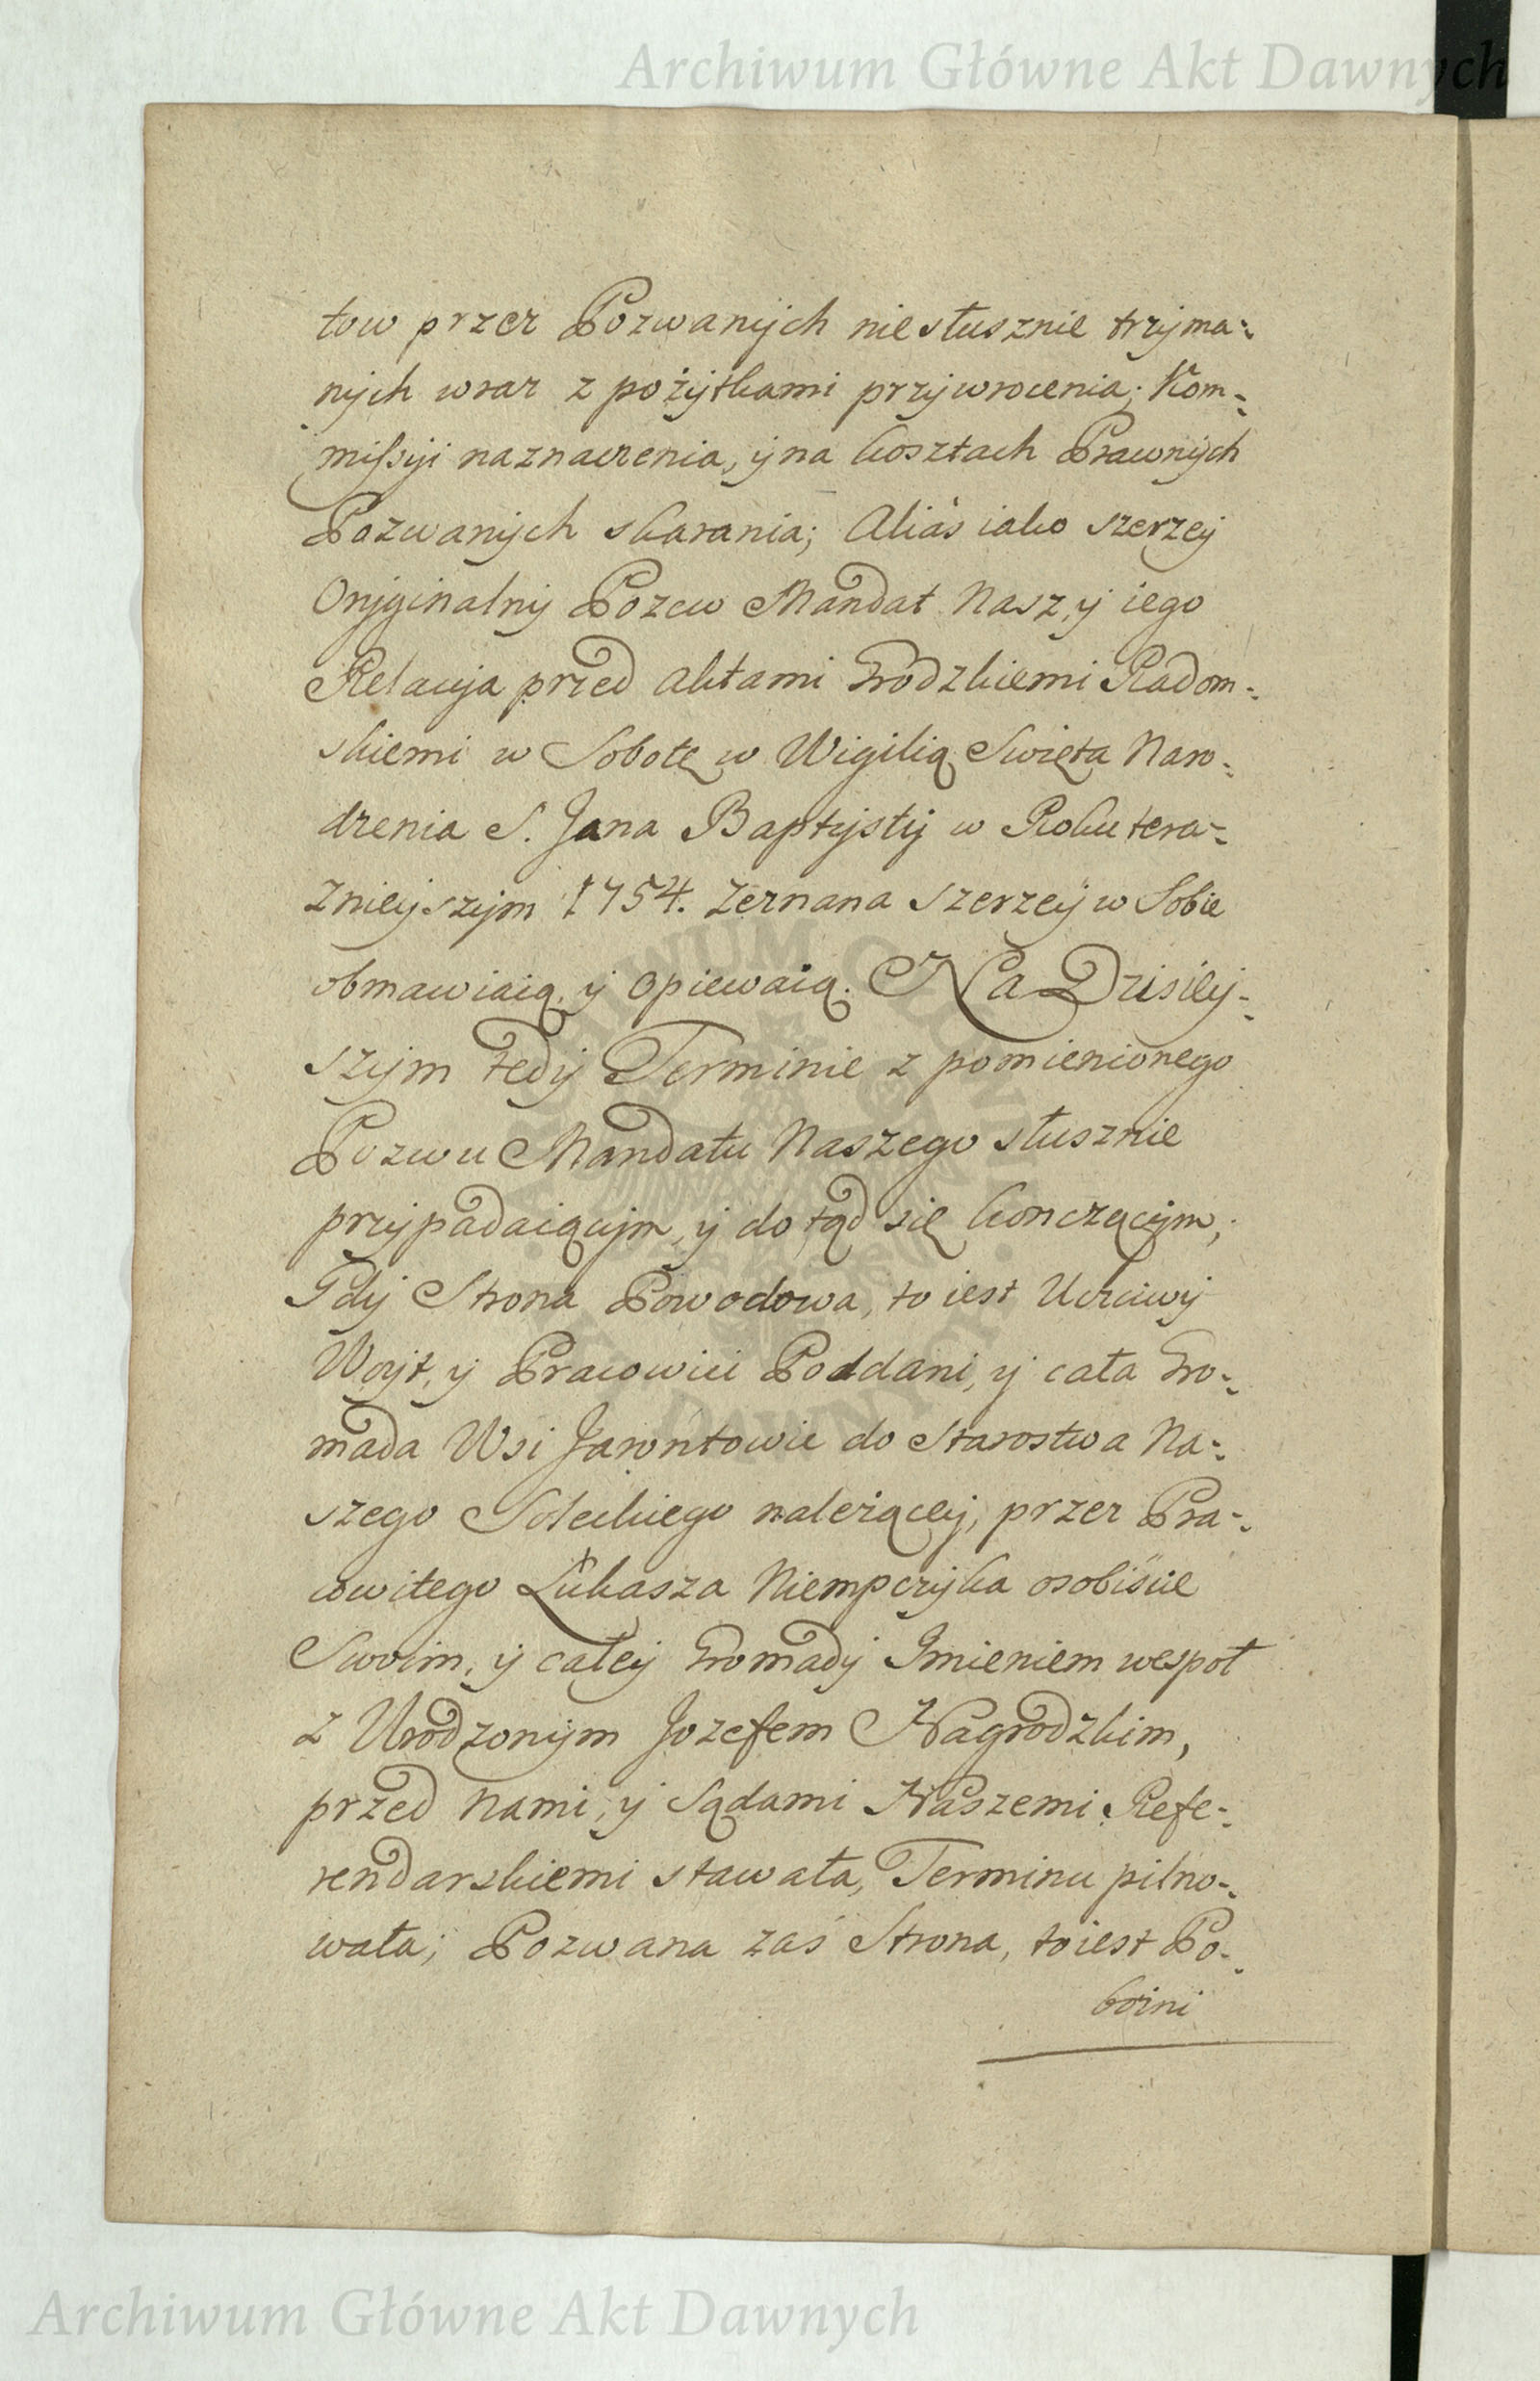 Archiwum Główne Akt Dawnych
tow przez Pozwanych niesłusznie trzyma-
nych wraz z pożytkami przywrocenia; Kom-
missyi naznaczenia, y na kosztach Prawnych
Pozwanych skarania; Aliàs iako szerzey
Oryginalny Pozew Mandat Nasz, y iego
Relacya przed aktami Grodzkiemi Radom-
skiemi w Sobotę w Wigilią Swięta Naro-
dzenia S. Jana Baptysty w Roku tera-
znieyszym 1754. Zeznana szerzey w Sobie
obmawiaią, y opiewaią. Na Dzisiey-
szym tedy Terminie z pomienionego
Pozwu Mandatu Naszego słusznie
przypadaiącym, y do tąd się konczącym;
Gdy Strona Powodowa, to iest Uczciwy
Woyt, y Pracowici Poddani, y cała Gro-
mada Wsi Jawontowie do Starostwa Na-
szego Soleckiego należącey, przez Pra-
cowitego Łukasza Niempczyka osobiście
Swoim, y całey Gromady Imieniem wespoł
z Urodzonym Jozefem Nagrodzkim,
przed Nami, y Sądami Naszemi Refe-
rendarskiemi stawała, Terminu pilno-
wała; Pozwana zaś Strona, to iest Po-
bożni
ARCHIWUM GŁÓWNE
AKT DAWNYCH
Archiwum Główne Akt Dawnych